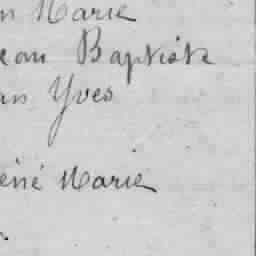 n Marie
ean Baptiste
an Yves
éné Marie